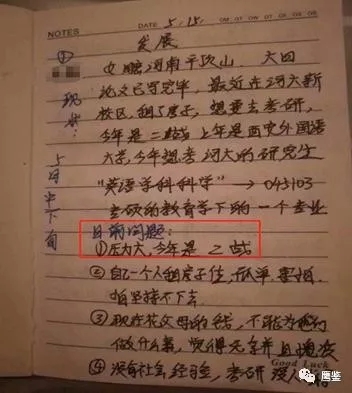 NOTES
DATE 5.15.
发展
①
女 河南平顶山. 大四
现状:
论文已写完毕, 最近在河大新
校区, 租了房子, 想要去考研,
今年是二战 上年是西安外国语
大学, 今年想考河大的研究生
5月中下旬
"英语学科科学" → 045103
专硕的教育学下的一个专业
目前问题:
①压力大, 今年是 二战
②自己一个人租房子住, 孤单. 害怕
怕坚持不下去
③现在花父母的钱, 不能为他们
做什么事, 觉得无奈并且愧疚
Good Luck
④没有社会经验, 考研 没
鹰鉴